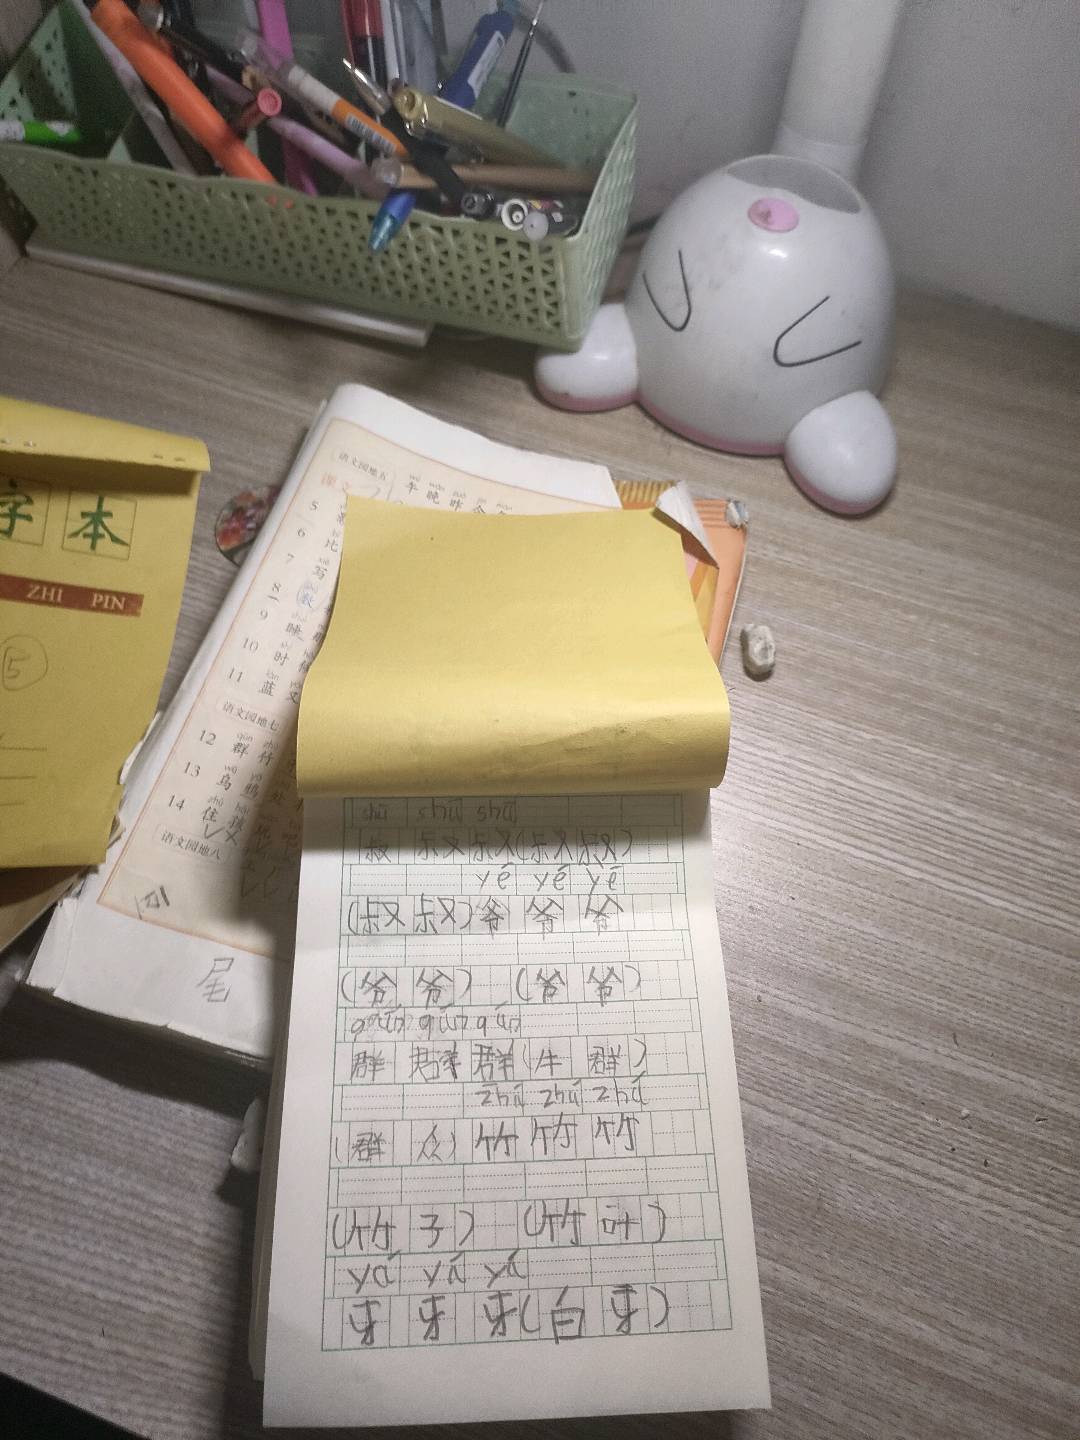 字 本
ZHI PIN
5
语文园地五
午 晚 昨 今
课文
5
6 比
7 写
8
9 睡
10 时
11 蓝
语文园地七
12 群 竹
13 乌 鸦 处
14 住 孩
语文园地八
尾
shū shū shū
叔 叔 叔(叔 叔)
yé yé yé
(叔 叔)爷 爷 爷
(爷 爷) (爷 爷)
qún qún qún
群 群 群(牛 群)
zhú zhú zhú
(群 众) 竹 竹 竹
(竹 子) (竹 叶)
yá yá yá
牙 牙 牙(白 牙)